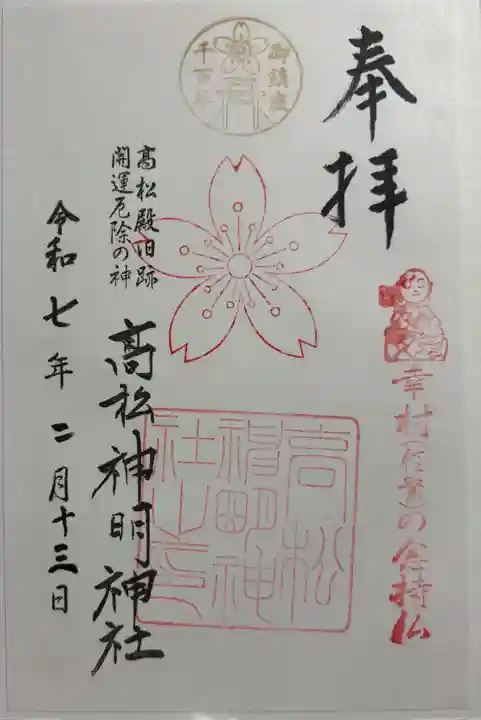 奉拝
幸村(信繁)の念持仏
御鎮座
千百年
高松殿旧跡
開運厄除の神
髙松神明神社
高松
神明神
社之印
令和七年二月十三日